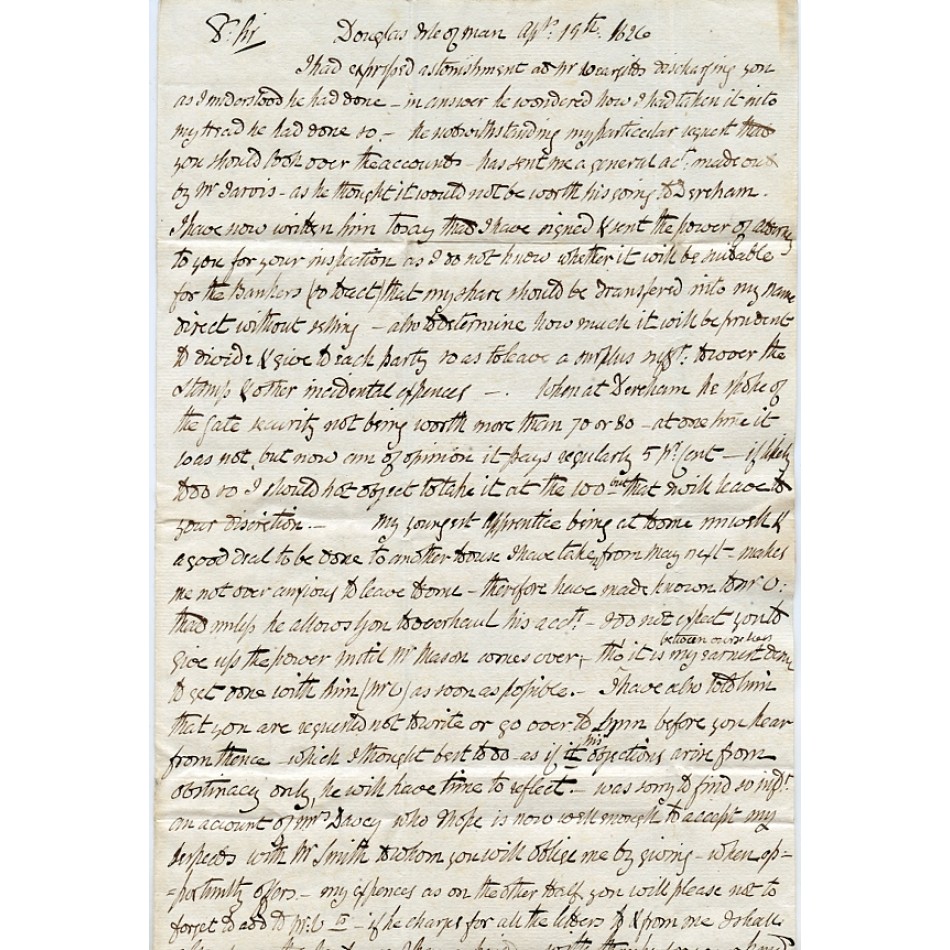 Dr. Sir Douglas Isle of man Apl. 19th. 1826
I had expressed astonishment at Mr discharging you
as I understood he had done - in answer he wondered how I had taken it into
my head he had done so - he notwithstanding my particular request that
you should look over the accounts - has sent me a general act. made out
by Mr Jarvis - as he thought it would not be worth his going to Dereham.
I have now written him to say that I have signed & sent the power of attorney
to you for your inspection as I do not know whether it will be suitable
for the Bankers (to act) that my share should be transfered into my name
direct without selling - also to determine how much it will be prudent
to divide & give to each party so as to leave a surplus to cover the
Stamps & other incidental expences -. When at Dereham he spoke of
the Gate security not being worth more than 70 or 80 - at one time it
was not, but now am of opinion it pays regularly 5 pr. Cent - if likely
to do so I should not object to take it at the 100 but that will leave to
your discretion. - my youngest apprentice being at home unwell &
a good deal to be done to another house I have taken from May next - makes
me not over anxious to leave home - therefore have made known to Mr
that unless he allows you to overhaul his acct. - I do not expect you to
give up the power until Mr Mason comes over, tho it is between ourselves my earnest desire
to get done with him as soon as possible. - I have also told him
that you are requested not to write or go over to Lynn before you hear
from thence - which I thought best to do - as if it his objections arise from
obstinacy only, he will have time to reflect. - was sorry to find so
an account of Mrs Davey who I hope is now well enough to accept my
respects with Mr Smith to whom you will oblige me by giving - when op=
=portunity offers. - my expences as on the other half you will please not to
forget to add to - if he charges for all the letters to & from me I shall